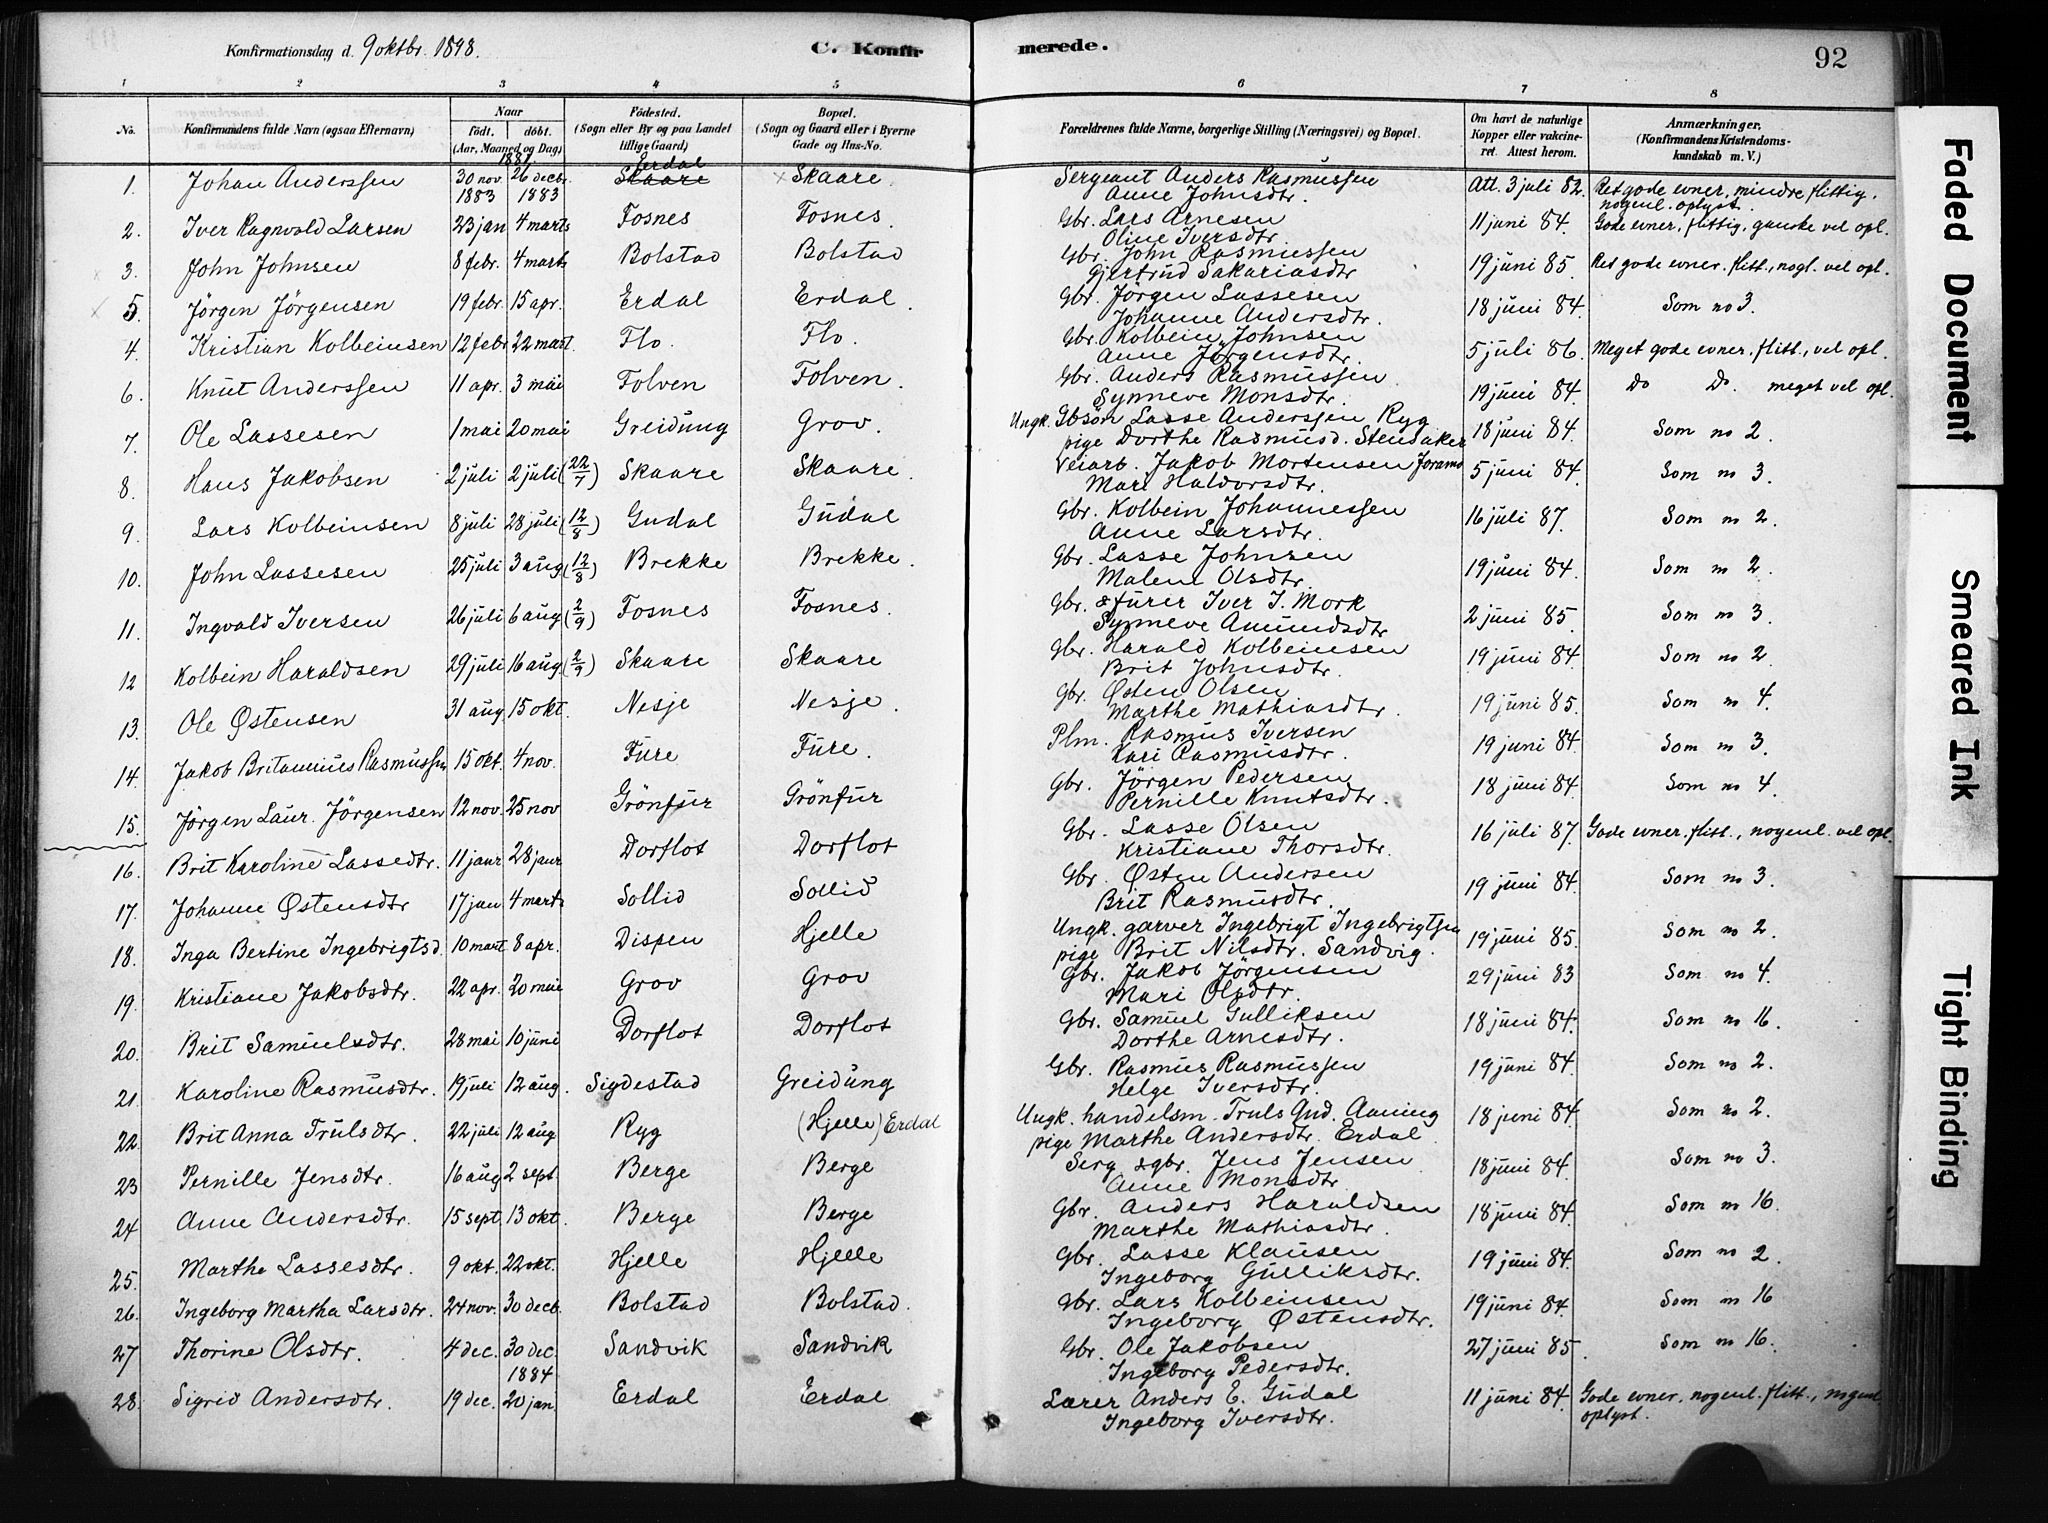 Konfirmationsdag d. 9 oktbr. 1898.
C. Konfirmerede.
92
1 2 3 4 5 6 7 8
No. | Konfirmandens fulde Navn (ogsaa Efternavn) | Naar født. døbt. (Aar, Maaned og Dag) | Fødested. (Sogn eller By og paa Landet tillige Gaard) | Bopæl. (Sogn og Gaard eller i Byerne Gade og Hus-No. | Forældrenes fulde Navne, borgerlige Stilling (Næringsvei) og Bopæl. | Om havt de naturlige Kopper eller vakcineret. Attest herom. | Anmærkninger. (Konfirmandens Kristendomskundskab m. V.)
1881.
1. Johan Anderssen | 30 nov. | 26 decbr. | Skaare Erdal | Skaare. | Sergeant Anders Rasmussen Anne Johnsdtr. | Att. 3 juli 82. | Ret gode evner, mindre flittig, nogenl. oplyst.
1883 1883
2. Iver Ragnvald Larsen | 23 jan | 4 marts | Fosnes | Fosnes. | Gbr. Lars Arnesen Oline Iversdtr. | 11 juni 84. | Gode evner, flittig, ganske vel opl.
3. John Johnsen | 8 febr. | 4 marts | Bolstad | Bolstad | Gbr. John Rasmussen Gjertrud Sakariasdtr | 19 juni 85. | Ret gode evner. flitt., nogl. vel opl.
5. Jörgen Jörgensen | 19 febr. | 15 apr. | Erdal | Erdal. | Gbr. Jörgen Lassesen Johanne Andersdtr. | 18 juni 84. | Som no 3.
4. Kristian Kolbeinsen | 12 febr | 22 mart. | Flo. | Flo. | Gbr. Kolbein Johnsen Anne Jörgensdtr. | 5 juli 86. | Meget gode evner, flitt., vel opl.
6. Knut Anderssen | 11 apr. | 3 mai | Folven | Folven. | Gbr. Anders Rasmussen Synneve Monsdtr. | 19 juni 84. | Do Do. meget vel opl.
7. Ole Lassesen | 1 mai | 20 mai | Greidung | Grov. | Ungk. Gbsön Lasse Anderssen Ryg pige Dorthe Rasmusd. Stensaker | 18 juni 84. | Som no 2.
8. Hans Jakobsen | 2 juli | 2 juli (22/7) | Skaare | Skaare. | Veiarb. Jakob Mortensen Joramo Mari Haldorsdtr. | 5 juni 84 | Som no 3.
9. Lars Kolbeinsen | 8 juli | 28 juli (12/8) | Gudal | Gudal | Gbr. Kolbein Johannessen Anne Larsdtr. | 16 juli 87. | Som no 2.
10. John Lassesen | 25 juli | 3 aug. (12/8) | Brekke | Brekke. | Gbr. Lasse Johnsen Malene Olsdtr. | 19 juni 84. | Som no 2.
11. Ingvald Iversen | 26 juli | 6 aug. (2/9) | Fosnes | Fosnes. | Gbr. & furer Iver J. Mork Synneve Amundsdtr | 2 juni 85. | Som no 3.
12 Kolbein Haraldsen | 29 juli | 16 aug. (2/9) | Skaare | Skaare | Gbr. Harald Kolbeinsen Brit Johnsdtr. | 19 juni 84. | Som no 2.
13. Ole Østensen | 31 aug | 15 okt. | Nesje | Nesje. | Gbr. Østen Olsen Marthe Mathiasdtr. | 19 juni 85. | Som no 4.
14. Jakob Britannius Rasmussen | 15 okt. | 4 nov. | Fure | Fure. | Plm. Rasmus Iversen Kari Rasmusdtr. | 19 juni 84. | Som no 3.
15. Jörgen Laur. Jörgensen | 12 nov. | 25 nov | Grönfur | Grönfur | Gbr. Jörgen Pedersen Pernille Knutsdtr. | 18 juni 84. | Som no 4.
16. Brit Karoline Lassedtr. | 11 janr | 28 janr | Dorflot | Dorflot | Gbr. Lasse Olsen Kristiane Thorsdtr. | 16 juli 87. | Gode evner, flitt., nogenl. vel opl.
17. Johanne Østensdtr | 17 jan | 4 marts | Sollid | Sollid | Gbr. Østen Andersen Brit Rasmusdtr. | 19 juni 84. | Som no 3.
18. Inga Bertine Ingebrigtsd. | 10 mart | 8 apr. | Dispen | Hjelle | Ungk. garver Ingebrigt Ingebrigtsen pige Brit Nilsdtr. Sandvig. | 19 juni 85. | Som no 2.
19. Kristiane Jakobsdtr. | 22 apr. | 20 mai | Grov | Grov | Gbr. Jakob Jörgensen Mari Olsdtr. | 29 juni 83 | Som no 4.
20. Brit Samuelsdtr. | 28 mai | 10 juni | Dorflot | Dorflot | Gbr. Samuel Gulliksen Dorthe Arnesdtr. | 18 juni 84. | Som no 16.
21. Karoline Rasmusdtr. | 19 juli | 12 aug. | Sigdestad | Greidung | Gbr. Rasmus Rasmussen Helge Iversdtr. | 19 juni 84. | Som no 2.
22. Brit Anna Trulsdtr. | 22 juli | 12 aug | Ryg | (Hjelle) Erdal | Ungk. handelsm. Truls Gud. Aaning pige Marthe Andersdtr. Erdal. | 18 juni 84. | Som no 2.
23 Pernille Jensdtr. | 16 aug | 2 sept. | Berge | Berge | Serg. & gbr. Jens Jensen Anne Monsdtr | 18 juni 84. | Som no 3.
24 Anne Andersdtr. | 15 sept. | 13 okt. | Berge | Berge | Gbr. Anders Haraldsen Marthe Mathiasdtr. | 18 juni 84. | Som no 16.
25. Marthe Lassesdtr. | 9 okt. | 22 okt. | Hjelle | Hjelle | Gbr. Lasse Klausen Ingeborg Gulliksdtr. | 19 juni 84. | Som no 2
26. Ingeborg Martha Larsdtr. | 24 nov. | 30 decb. | Bolstad | Bolstad. | Gbr. Lars Kolbeinsen Ingeborg Østensdtr. | 19 juni 84. | Som no 16
27 Thorine Olsdtr. | 4 dec. | 30 dec. | Sandvik | Sandvik | Gbr. Ole Jakobsen Ingeborg Pedersdtr. | 27 juni 85. | Som no 16.
1884
28. Sigrid Andersdtr. | 19 dec. | 20 jan | Erdal | Erdal | Lærer Anders E. Gudal Ingeborg Iversdtr. | 11 juni 84. | Gode evner, nogenl. flitt., nogenl oplyst.
Faded Document
Smeared Ink
Tight Binding